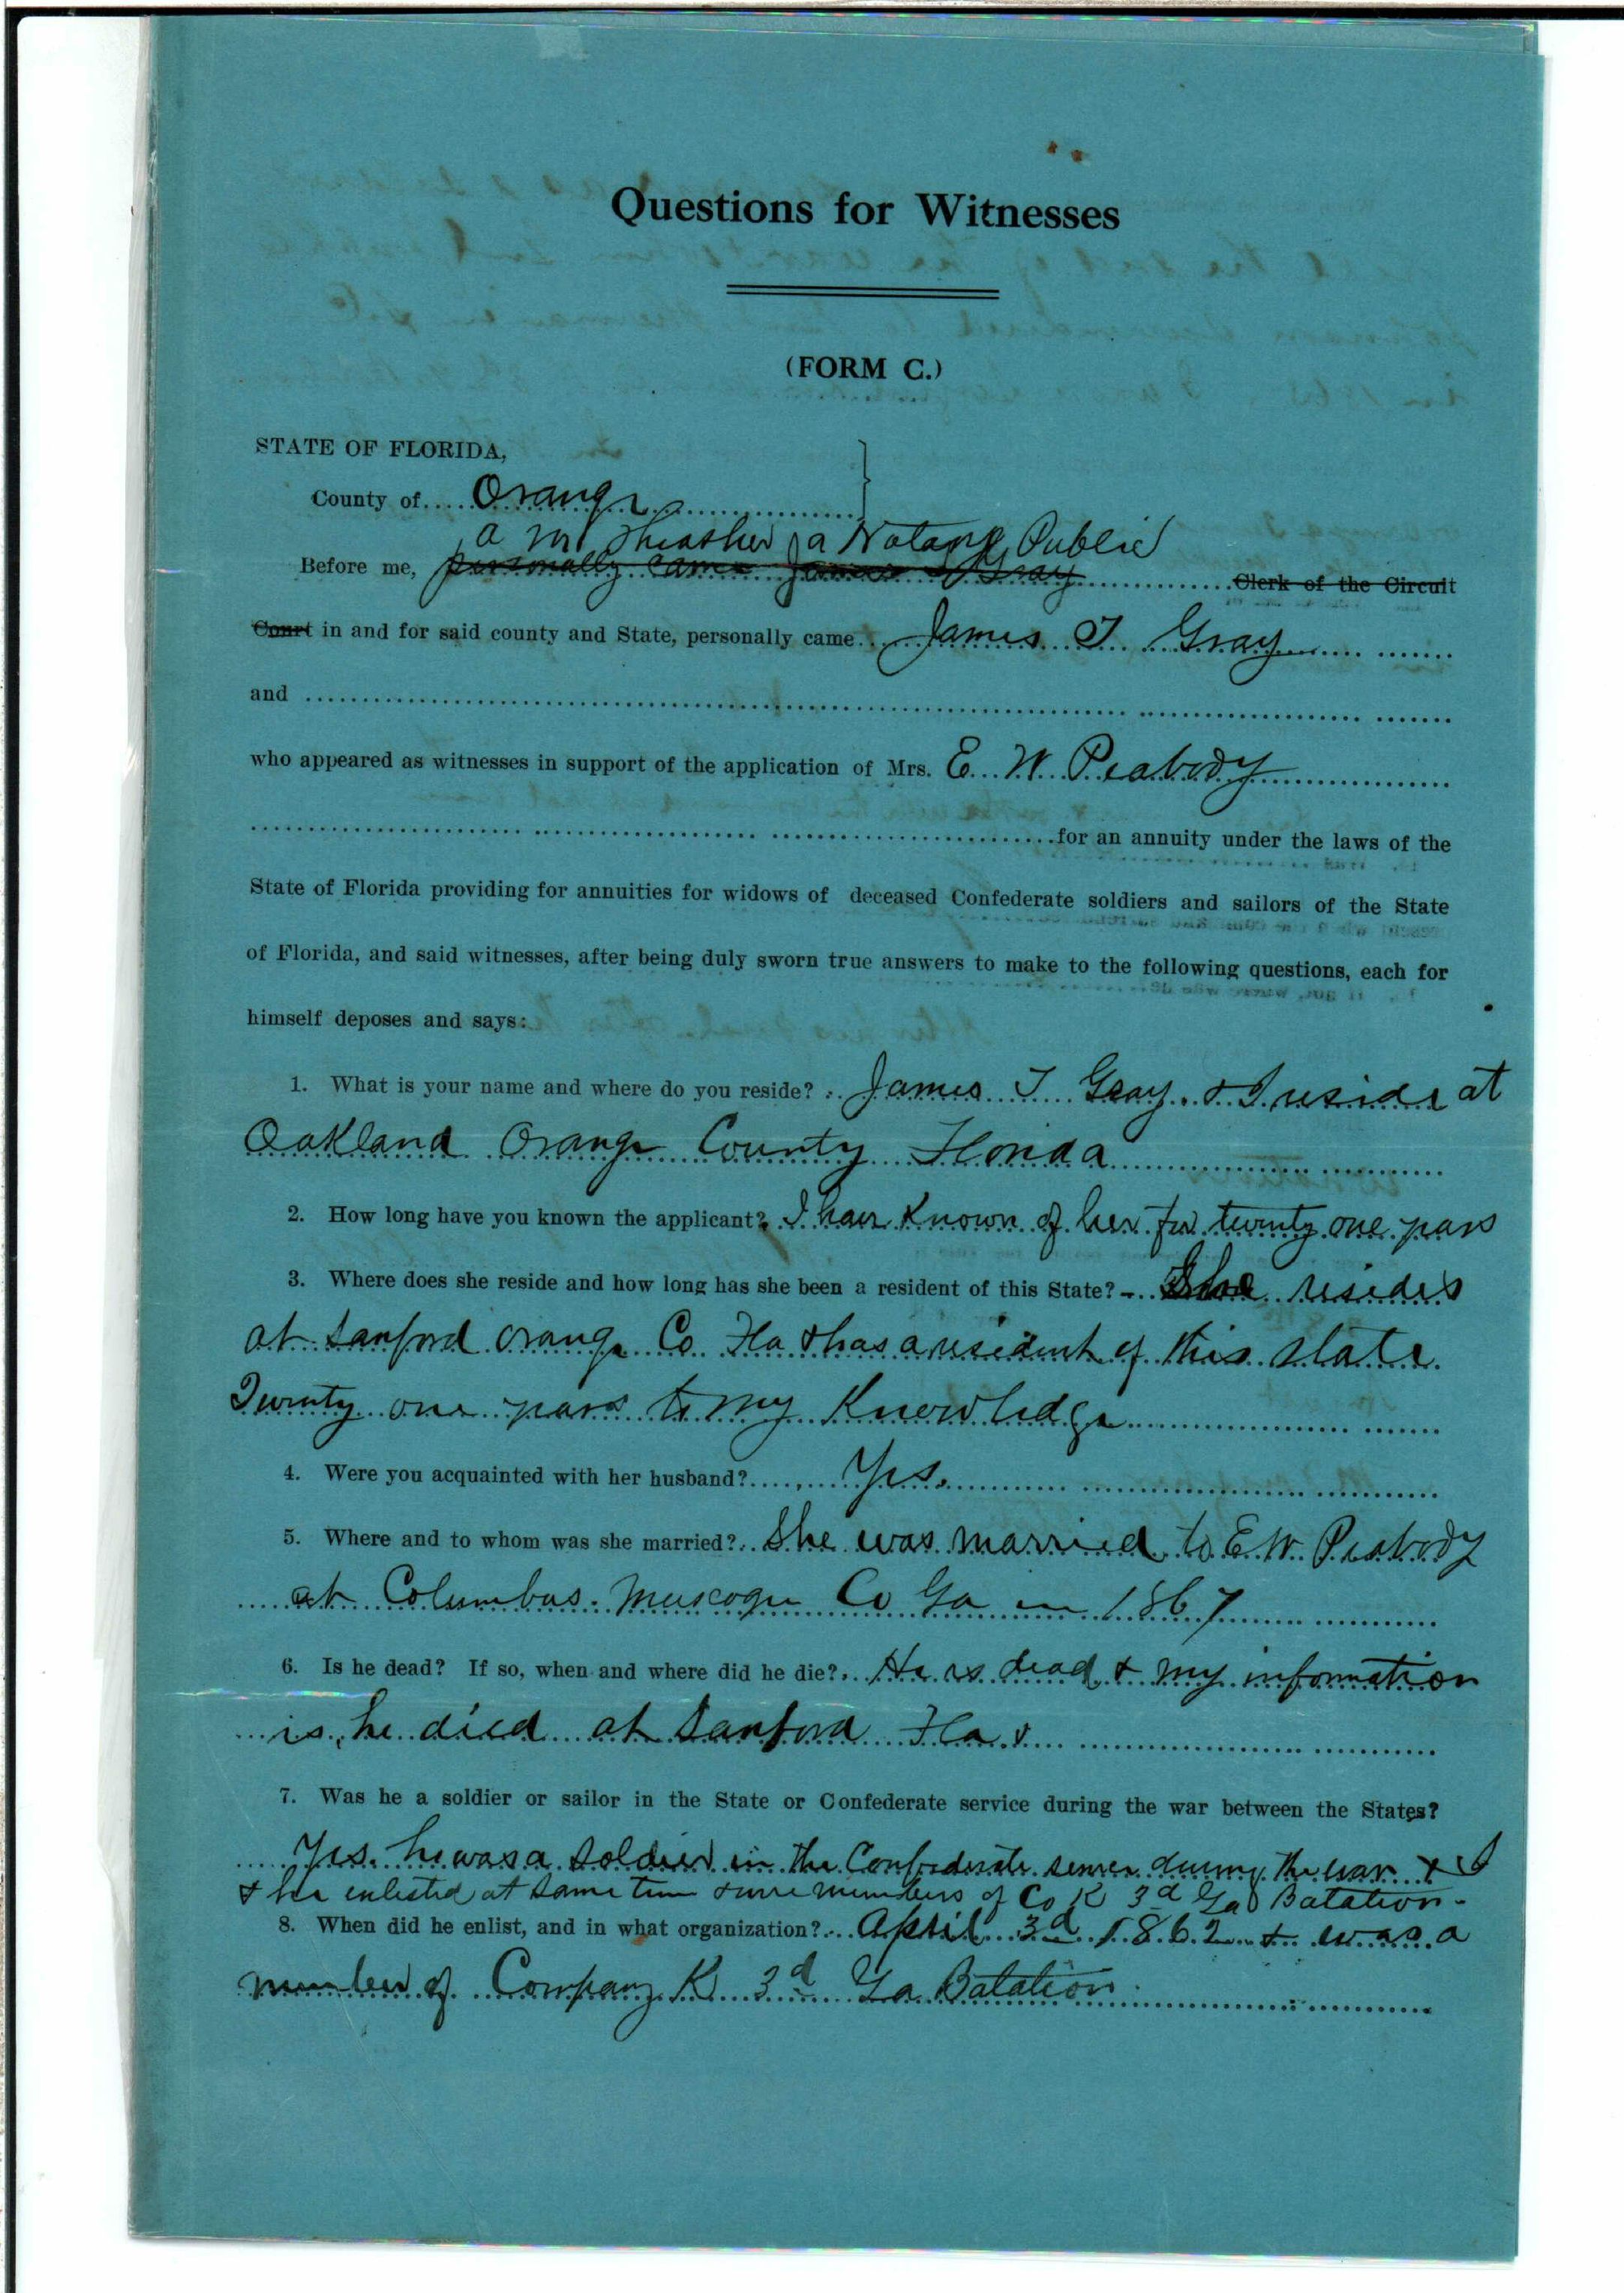 Questions for Witnesses
(FORM C.)
STATE OF FLORIDA,
County of Orange
a Notary Public
Before me, personally came James T Gray Clerk of the Circuit
Court in and for said county and State, personally came James T Gray
and
who appeared as witnesses in support of the application of Mrs. E. W. Peabody
for an annuity under the laws of the
State of Florida providing for annuities for widows of deceased Confederate soldiers and sailors of the State
of Florida, and said witnesses, after being duly sworn true answers to make to the following questions, each for
himself deposes and says:
1. What is your name and where do you reside? James T Gray. & I reside at
Oakland Orange County Florida
2. How long have you known the applicant? I have Known of her for twenty one years
3. Where does she reside and how long has she been a resident of this State? She resides
at Sanford Orange Co. Fla & has a resident of this state
Twenty one years to my Knowledge
4. Were you acquainted with her husband? Yes.
5. Where and to whom was she married? She was married to E W. Peabody
at Columbus. Muscogee Co Ga in 1867
6. Is he dead? If so, when and where did he die? He is dead & my information
is, he died at Sanford Fla &
7. Was he a soldier or sailor in the State or Confederate service during the war between the States?
Yes. he was a soldier in the Confederate service during the war & I
& he enlisted at same time & were members of Co K 3d Ga Batation-
8. When did he enlist, and in what organization? April 3d 1862 & was a
member of Company K 3d Ga Batation.